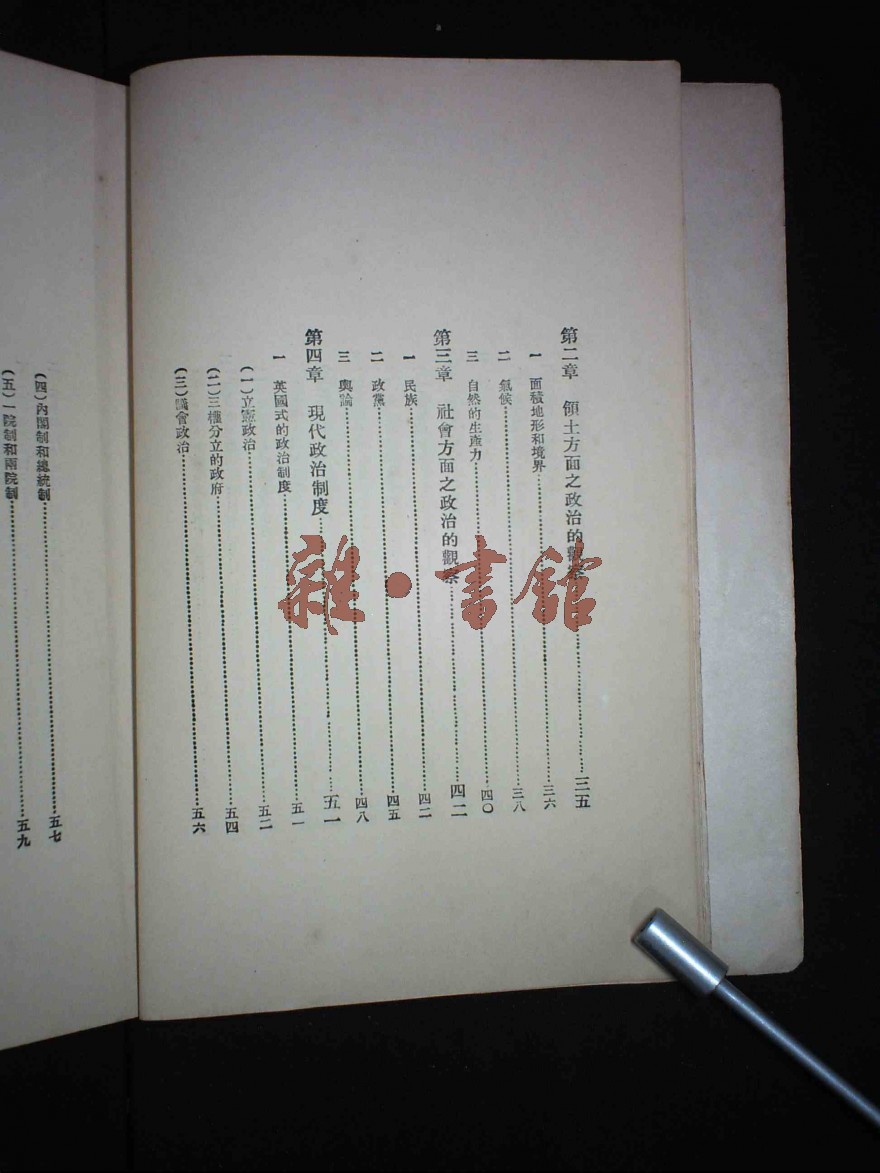 第二章　領土方面之政治的觀察……三五
一　面積地形和境界……三六
二　氣候……三八
三　自然的生產力……四〇
第三章　社會方面之政治的觀察……四二
一　民族……四二
二　政黨……四五
三　輿論……四八
第四章　現代政治制度……五一
一　英國式的政治制度……五一
(一)立憲政治……五二
(二)三權分立的政府……五四
(三)議會政治……五六
(四)內閣制和總統制……五七
(五)一院制和兩院制……五九
雜·書館